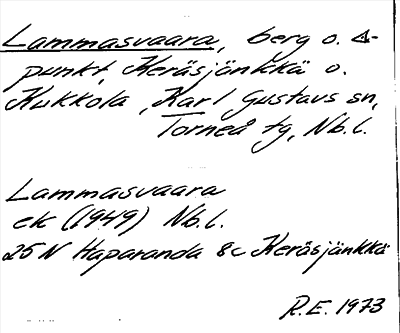 Lammasvaara, berg o. △-
punkt, Keräsjänkkä o.
Kukkola, Karl Gustavs sn,
Torneå tg, Nb.l.
Lammasvaara
ek (1949) Nb.l.
25N Haparanda 8c Keräsjänkkä
R.E. 1973